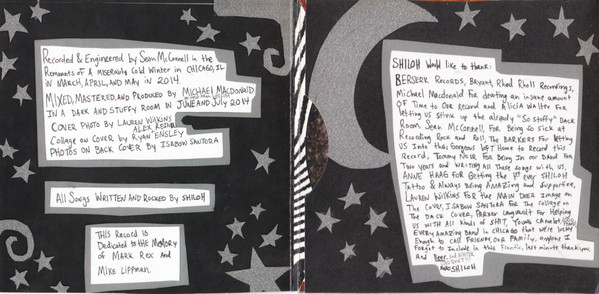 Recorded & Engineered by Sean McConnell in the
Remnants of a miserably cold winter in CHICAGO, IL
in MARCH, APRIL, and MAY in 2014.
MIXED, MASTERED, AND PRODUCED BY MICHAEL MACDONALD
IN A DARK AND STUFFY ROOM IN JUNE AND JULY 2014
COVER PHOTO BY LAUREN WILKINS
Collage on Cover by RYAN ENSLEY
PHOTOS ON BACK COVER BY ISABOW SANTORA
All Songs WRITTEN AND ROCKED BY SHILOH
THIS Record IS
Dedicated to THE MEMORY
OF MARK REX AND
MIKE LIPPMAN.
SHILOH Would like to thank:
BERSERK RECORDS, Bryant, Rhed Rholl Recordings,
Michael Macdonald For donating an insane amount
OF Time to Our Record and Alicia Walter For
letting us stink up the already "So Stuffy" Dark
Room, Sean McConnell For Being So Sick at
Recording Rock and Roll, THE BARKERS For letting
Us Into their Gorgeous Home to Record this
Record, Tommy NOIR For Being In our Band For
Two years and Writing all These songs with us,
ANNE HAAG For Getting the 1st ever SHILOH
Tattoo & Always Being Amazing and Supportive,
LAUREN WILKINS For the MAIN Deer Image on
The Cover, ISABOW SANTORA For The Collage on
The Back Cover, Parker Langvardt For Helping
Us WITH All Kinds of SHIT, Young Camelot,
Every Amazing Band in CHICAGO that we're lucky
Enough to CALL FRIENDS, Our FAMILY, anyone I
Forgot to Include in this Frantic, last minute thank you,
and Beer.
SHILOH